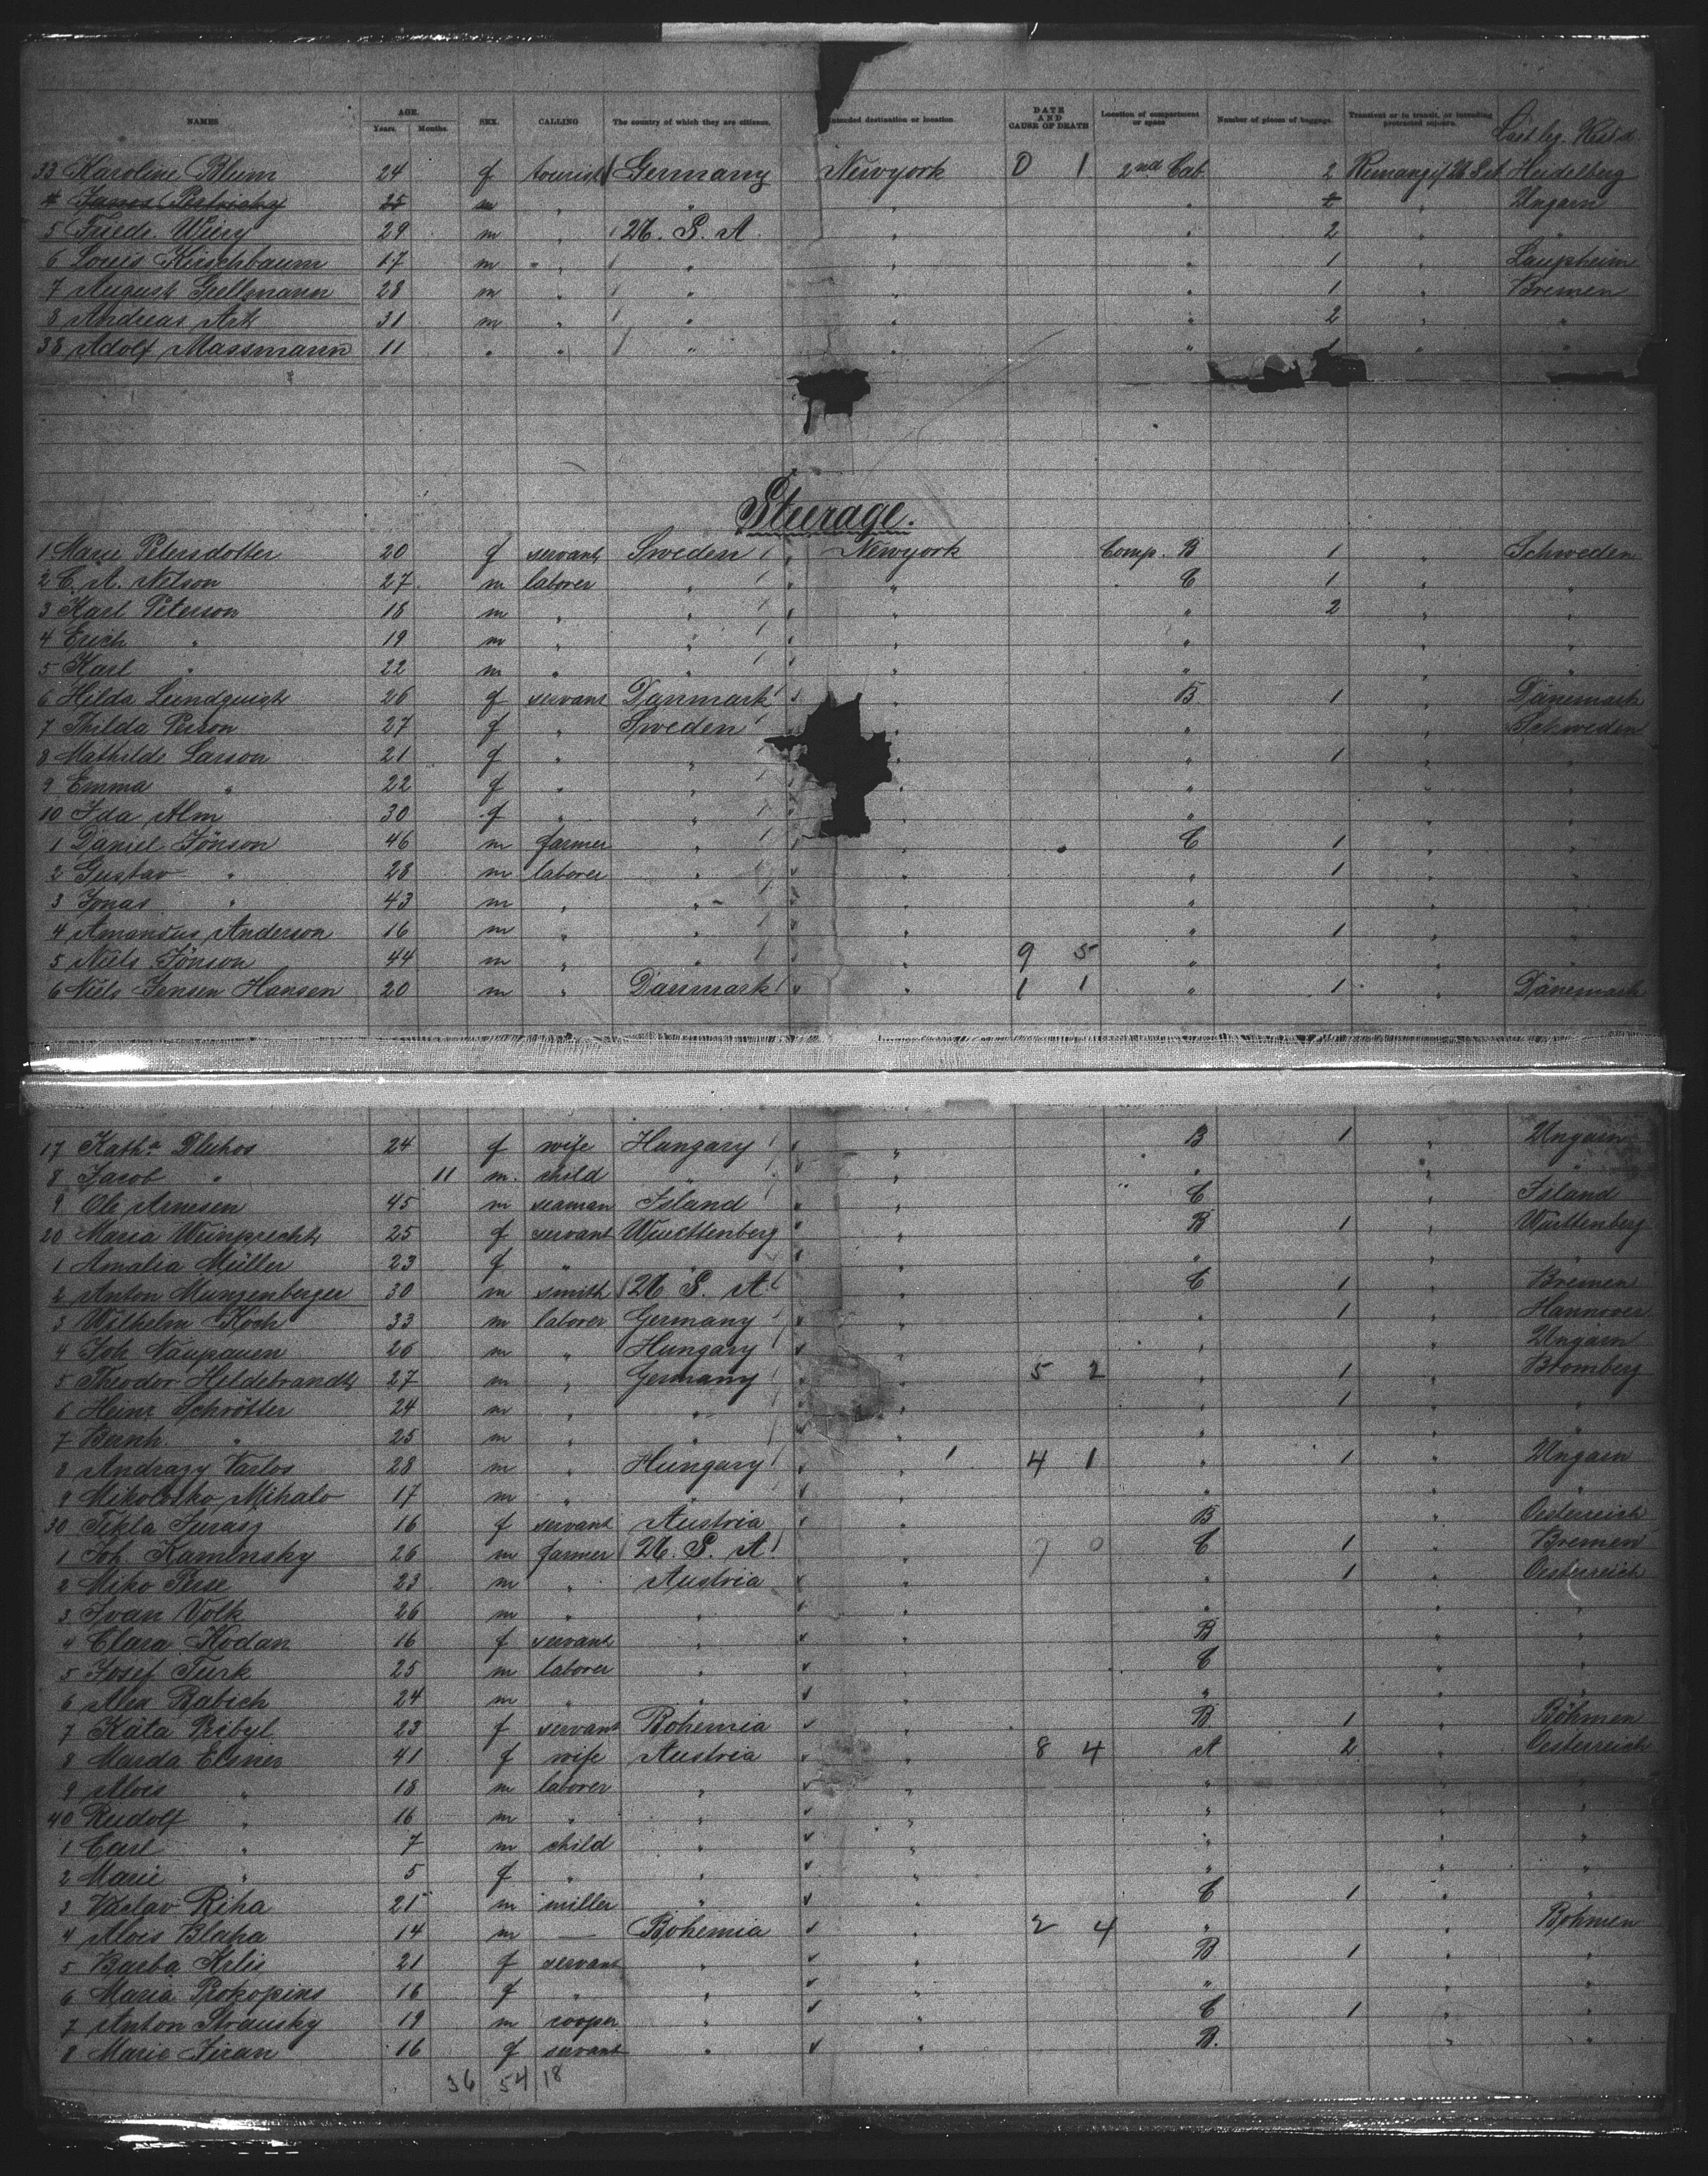 NAMES AGE. Years. Months. SEX. CALLING The country of which they are citizens. Intended destination or location. DATE AND CAUSE OF DEATH Location of compartment or space Number of pieces of baggage. Transient or in transit, or intending protracted sojourn.
33 Karoline Blum 24 f tourist Germany Newyork 0 1 2nd Cab. 2 Heidelberg
4 25 m " " " 2 " Ungarn
5 Friedr. 29 m " U. S. A. " " 2 " "
6 Louis Kirschbaum 17 m " " " " 1 " Laupheim
7 August Grellmann 28 m " " " " 1 " Bremen
8 Andreas Ark 31 m " " " " 2 " "
38 Adolf Massmann 11 " " " " " 1 " "
Steerage.
1 Marie Petersdotter 20 f servant Sweden " Newyork Comp. B 1 " Schweden
2 C. A. Nelson 27 m laborer " " C 1 " "
3 Karl Peterson 18 m " " " " 2 " "
4 Erich " 19 m " " " " " "
5 Karl " 22 m " " " " " "
6 Hilda Lundquist 26 f servant Danmark B 1 " Dänemark
7 Thilda Person 27 f " Sweden " " Schweden
8 Mathilde Larson 21 f " " " " 1 " "
9 Emma " 22 f " " " " " "
10 Ida Alm 30 f " " " " "
1 Daniel Jönson 46 m farmer " " C 1 " "
2 Gustav " 28 m laborer " " " 1 " "
3 Jonas " 43 m " " " " " "
4 Amandus Anderson 16 m " " " " 1 " "
5 Niels Jönson 44 m " " " 9 5 " " "
6 Niels Jensen Hansen 20 m " Danmark " 1 1 " 1 " Dänemark
17 Katha Dluhos 24 f wife Hungary " B 1 " Ungarn
8 Jacob " 11 m. child " " " " "
9 Ole Arnesen 45 m seaman Island " C " Island
20 Maria Weinprecht 25 f servant Wuerttenberg " B 1 " Württenberg
1 Amalia Müller 23 f " " " " " "
2 Anton Munzenberger 30 m smith U. S. A. " C 1 " Bremen
3 Wilhelm Koch 33 m laborer Germany " " 1 " Hannover
4 Joh. 26 m " Hungary " " " Ungarn
5 Theodor Hildebrandt 27 m " Germany " 5 2 " 1 " Bromberg
6 Heinr. Schrötter 24 m " " " " 1 " "
7 Bernh. " 25 m " " " " " "
8 Andrazy Varlos 28 m " Hungary " 4 1 " 1 " Ungarn
9 Mihalo 17 m " " " " " "
30 Tekla Jurasz 16 f servant Austria " B " Oesterreich
1 Joh. Kaminsky 26 m farmer U. S. A. " 7 0 C 1 " Bremen
2 Miko Perse 23 m " Austria " " 1 " Oesterreich
3 Ivan Volk 26 m " " " " " "
4 Clara Kodan 16 f servant " " B " "
5 Josef Turk 25 m laborer " " C " "
6 Alex Babich 24 m " " " " " "
7 Käta Pribyl 23 f servant Bohemia " B 1 " Böhmen
8 Marda Elsner 41 f wife Austria " 8 4 A 2 " Oesterreich
9 Alois " 18 m laborer " " " " "
40 Rudolf " 16 m " " " " " "
1 Carl " 7 m child " " " " "
2 Marie " 5 f " " " " " "
3 Václav Riha 21 m miller " " C 1 " "
4 Alois Blaha 14 m — Bohemia " 2 4 " " Böhmen
5 Barba Krlis 21 f servant " " B 1 " "
6 Maria Prokopins 16 f " " " " " "
7 Anton Stransky 19 m cooper " " C 1 " "
8 Marie Jiran 16 f servant " " B. " "
36 54 18